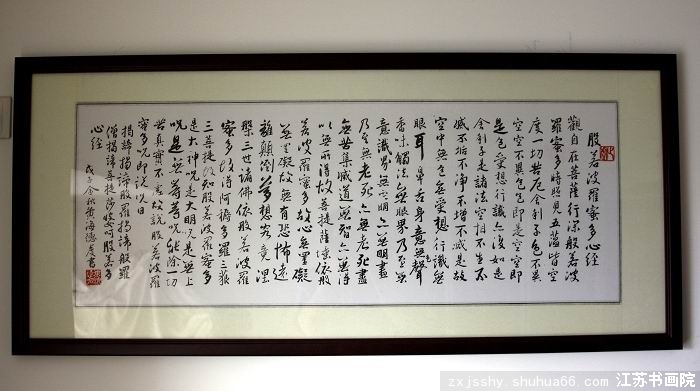 般若波羅蜜多心経
觀自在菩薩行深般若波
羅蜜多時照見五蕴皆空
度一切苦厄舍利子色不異
空空不異色色即是空空即
是色受想行識亦復如是
舍利子是諸法空相不生不
滅不垢不净不增不減是故
空中無色無受想行識無
眼耳鼻舌身意無色聲
香味觸法無眼界乃至無
意識界無無明亦無無明盡
乃至無老死亦無老死盡
無苦集滅道無智亦無得
以無所得故菩提薩埵依般
若波羅蜜多故心無罣礙
無罣礙故無有恐怖遠
離顛倒夢想究竟涅
槃三世諸佛依般若波羅
蜜多故得阿耨多羅三藐
三菩提故知般若波羅蜜多
是大神咒是大明咒是無上
咒是無等等咒能除一切
苦真實不虛故說般若波羅
蜜多咒即說咒曰
揭諦揭諦般羅揭諦般羅
僧揭諦菩提薩婆呵般若多
心経
戊子金秋黄海德彦書
zxjsshy.shuhua66.com 江苏书画院